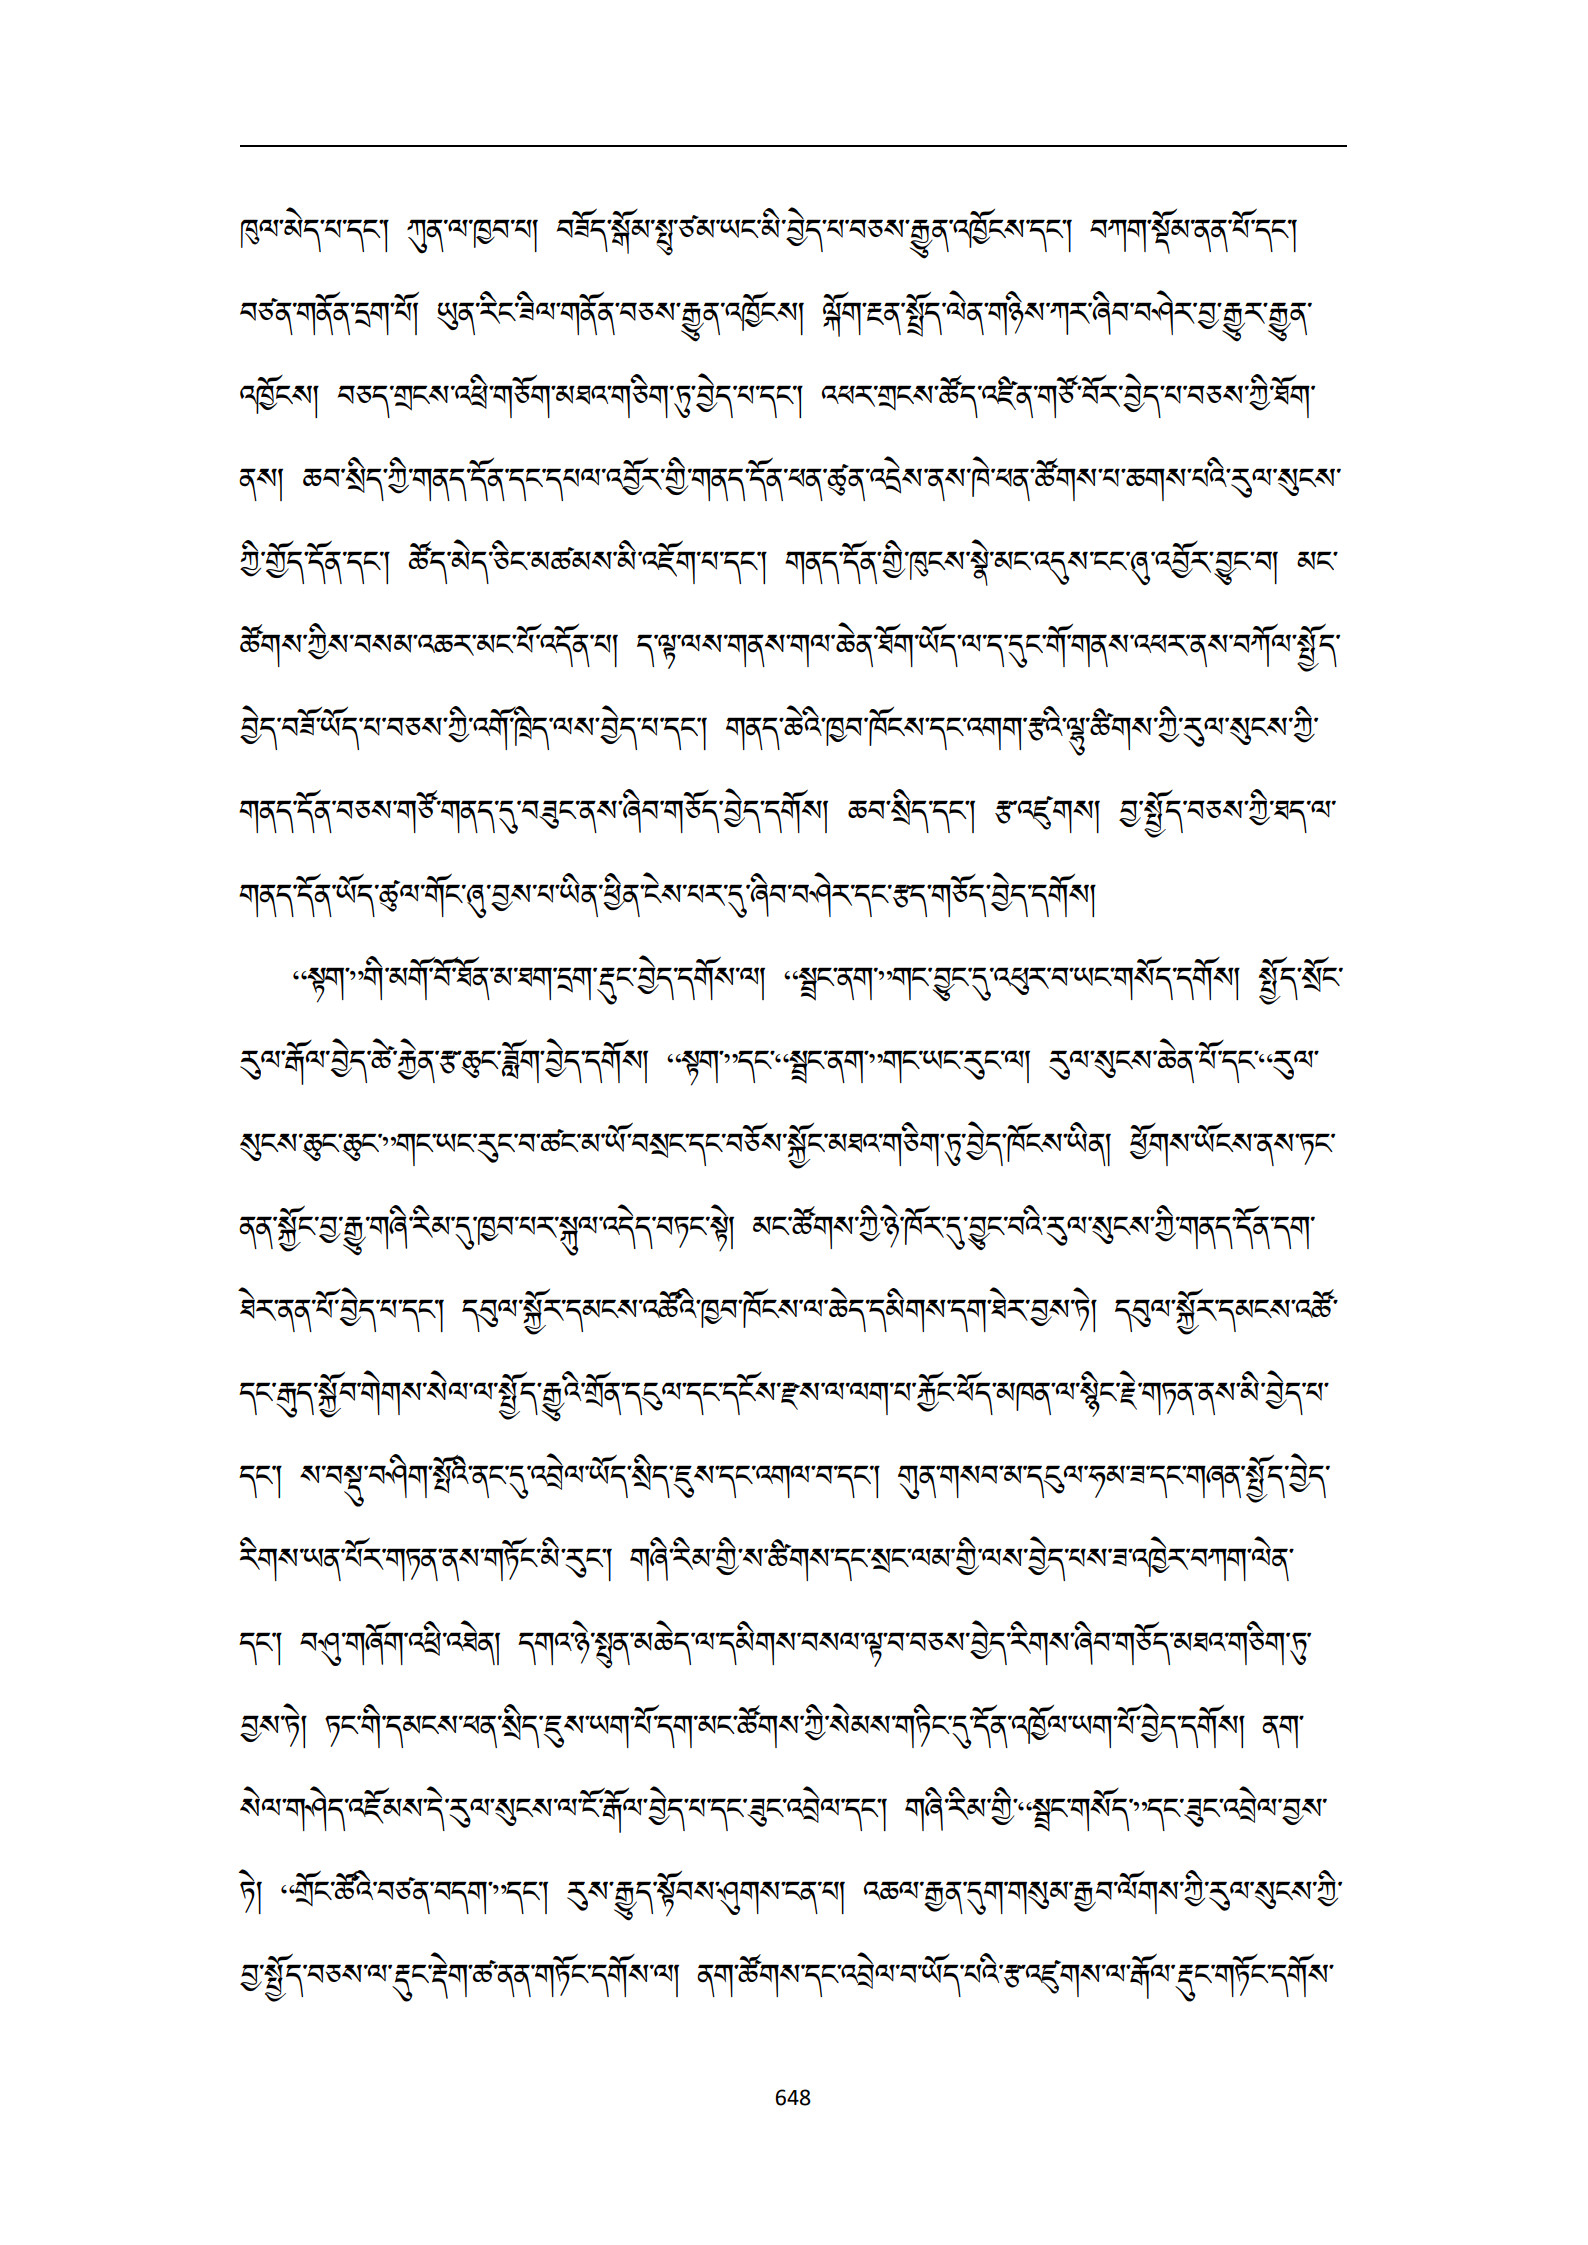 ཁུལ་མེད་པ་དང་།  ཀུན་ལ་ཁྱབ་པ།  བཟོད་སྒོམ་སྤུ་ཙམ་ཡང་མི་བྱེད་པ་བཅས་རྒྱུན་འཁྱོངས་དང་།  བཀག་སྡོམ་ནན་པོ་དང་།
བཙན་གནོན་དྲག་པོ།  ཡུན་རིང་ཟིལ་གནོན་བཅས་རྒྱུན་འཁྱོངས།  ལྐོག་རྔན་སྤྲོད་ལེན་གཉིས་ཀར་ཞིབ་བཤེར་བྱ་རྒྱུར་རྒྱུན་
འཁྱོངས།  བཅད་གྲངས་འཕྲི་གཅོག་མཐའ་གཅིག་ཏུ་བྱེད་པ་དང་།  འཕར་གྲངས་ཚོད་འཛིན་གཙོ་བོར་བྱེད་པ་བཅས་ཀྱི་ཐོག་
ནས།  ཆབ་སྲིད་ཀྱི་གནད་དོན་དང་དཔལ་འབྱོར་གྱི་གནད་དོན་ཕན་ཚུན་འདྲེས་ནས་ཁེ་ཕན་ཚོགས་པ་ཆགས་པའི་རུལ་སུངས་
ཀྱི་གྱོད་དོན་དང་།  ཚོད་མེད་ཅིང་མཚམས་མི་འཇོག་པ་དང་།  གནད་དོན་གྱི་ཁུངས་སྣེ་མང་འདུས་ངང་ཞུ་འབྱོར་བྱུང་བ།  མང་
ཚོགས་ཀྱིས་བསམ་འཆར་མང་པོ་འདོན་པ།  ད་ལྟ་ལས་གནས་གལ་ཆེན་ཐོག་ཡོད་ལ་ད་དུང་གོ་གནས་འཕར་ནས་བཀོལ་སྤྱོད་
བྱེད་བཟོ་ཡོད་པ་བཅས་ཀྱི་འགོ་ཁྲིད་ལས་བྱེད་པ་དང་།  གནད་ཆེའི་ཁྱབ་ཁོངས་དང་འགག་རྩའི་ལྷུ་ཚིགས་ཀྱི་རུལ་སུངས་ཀྱི་
གནད་དོན་བཅས་གཙོ་གནད་དུ་བཟུང་ནས་ཞིབ་གཅོད་བྱེད་དགོས།  ཆབ་སྲིད་དང་།  རྩ་འཛུགས།  བྱ་སྤྱོད་བཅས་ཀྱི་ཐད་ལ་
གནད་དོན་ཡོད་ཚུལ་གོང་ཞུ་བྱས་པ་ཡིན་ཕྱིན་ངེས་པར་དུ་ཞིབ་བཤེར་དང་རྩད་གཅོད་བྱེད་དགོས།
“སྟག་”གི་མགོ་བོ་ཐོན་མ་ཐག་དྲག་རྡུང་བྱེད་དགོས་ལ།  “སྦྲང་ནག་”གང་བྱུང་དུ་འཕུར་བ་ཡང་གསོད་དགོས།  སྤྱོད་སྲོང་
རུལ་རྒོལ་བྱེད་ཚེ་རྐྱེན་རྩ་ཆུང་ཟློག་བྱེད་དགོས།  “སྟག་”དང་“སྦྲང་ནག་”གང་ཡང་རུང་ལ།  རུལ་སུངས་ཆེན་པོ་དང་“རུལ་
སུངས་ཆུང་ཆུང་”གང་ཡང་རུང་བ་ཚང་མ་ཡོ་བསྲང་དང་བཅོས་སྐྱོང་མཐའ་གཅིག་ཏུ་བྱེད་ཁོངས་ཡིན།  ཕྱོགས་ཡོངས་ནས་ཏང་
ནན་སྐྱོང་བྱ་རྒྱུ་གཞི་རིམ་དུ་ཁྱབ་པར་སྐུལ་འདེད་བཏང་སྟེ།  མང་ཚོགས་ཀྱི་ཉེ་ཁོར་དུ་བྱུང་བའི་རུལ་སུངས་ཀྱི་གནད་དོན་དག་
ཐེར་ནན་པོ་བྱེད་པ་དང་།  དབུལ་སྐྱོར་དམངས་འཚོའི་ཁྱབ་ཁོངས་ལ་ཆེད་དམིགས་དག་ཐེར་བྱས་ཏེ།  དབུལ་སྐྱོར་དམངས་འཚོ་
དང་རྒུད་སྐྱོབ་གེགས་སེལ་ལ་སྤྱོད་རྒྱུའི་གྲོན་དངུལ་དང་དངོས་རྫས་ལ་ལག་པ་རྐྱོང་ཕོད་མཁན་ལ་སྙིང་རྗེ་གཏན་ནས་མི་བྱེད་པ་
དང་།  ས་བསྡུ་བཤིག་སྤོའི་ནང་དུ་འབྲེལ་ཡོད་སྲིད་ཇུས་དང་འགལ་བ་དང་།  གུན་གསབ་མ་དངུལ་ཧམ་ཟ་དང་གཞན་སྤྱོད་བྱེད་
རིགས་ཡན་པོར་གཏན་ནས་གཏོང་མི་རུང་།  གཞི་རིམ་གྱི་ས་ཚིགས་དང་སྲང་ལམ་གྱི་ལས་བྱེད་པས་ཟ་འཁྱེར་བཀག་ལེན་
དང་།  བཤུ་གཞོག་འཕྲི་འཐེན།  དགའ་ཉེ་སྤུན་མཆེད་ལ་དམིགས་བསལ་ལྟ་བ་བཅས་བྱེད་རིགས་ཞིབ་གཅོད་མཐའ་གཅིག་ཏུ་
བྱས་ཏེ།  ཏང་གི་དམངས་ཕན་སྲིད་ཇུས་ཡག་པོ་དག་མང་ཚོགས་ཀྱི་སེམས་གཏིང་དུ་དོན་འཁྱོལ་ཡག་པོ་བྱེད་དགོས།  ནག་
སེལ་གཤེད་འཇོམས་དེ་རུལ་སུངས་ལ་ངོ་རྒོལ་བྱེད་པ་དང་ཟུང་འབྲེལ་དང་།  གཞི་རིམ་གྱི་“སྦྲང་གསོད་”དང་ཟུང་འབྲེལ་བྱས་
ཏེ།  “གྲོང་ཚོའི་བཙན་བདག་”དང་།  རུས་རྒྱུད་སྟོབས་ཤུགས་ངན་པ།  འཆལ་རྒྱན་དུག་གསུམ་རྒྱབ་ལོགས་ཀྱི་རུལ་སུངས་ཀྱི་
བྱ་སྤྱོད་བཅས་ལ་རྡུང་རྡེག་ཚ་ནན་གཏོང་དགོས་ལ།  ནག་ཚོགས་དང་འབྲེལ་བ་ཡོད་པའི་རྩ་འཛུགས་ལ་རྒོལ་རྡུང་གཏོང་དགོས་
648